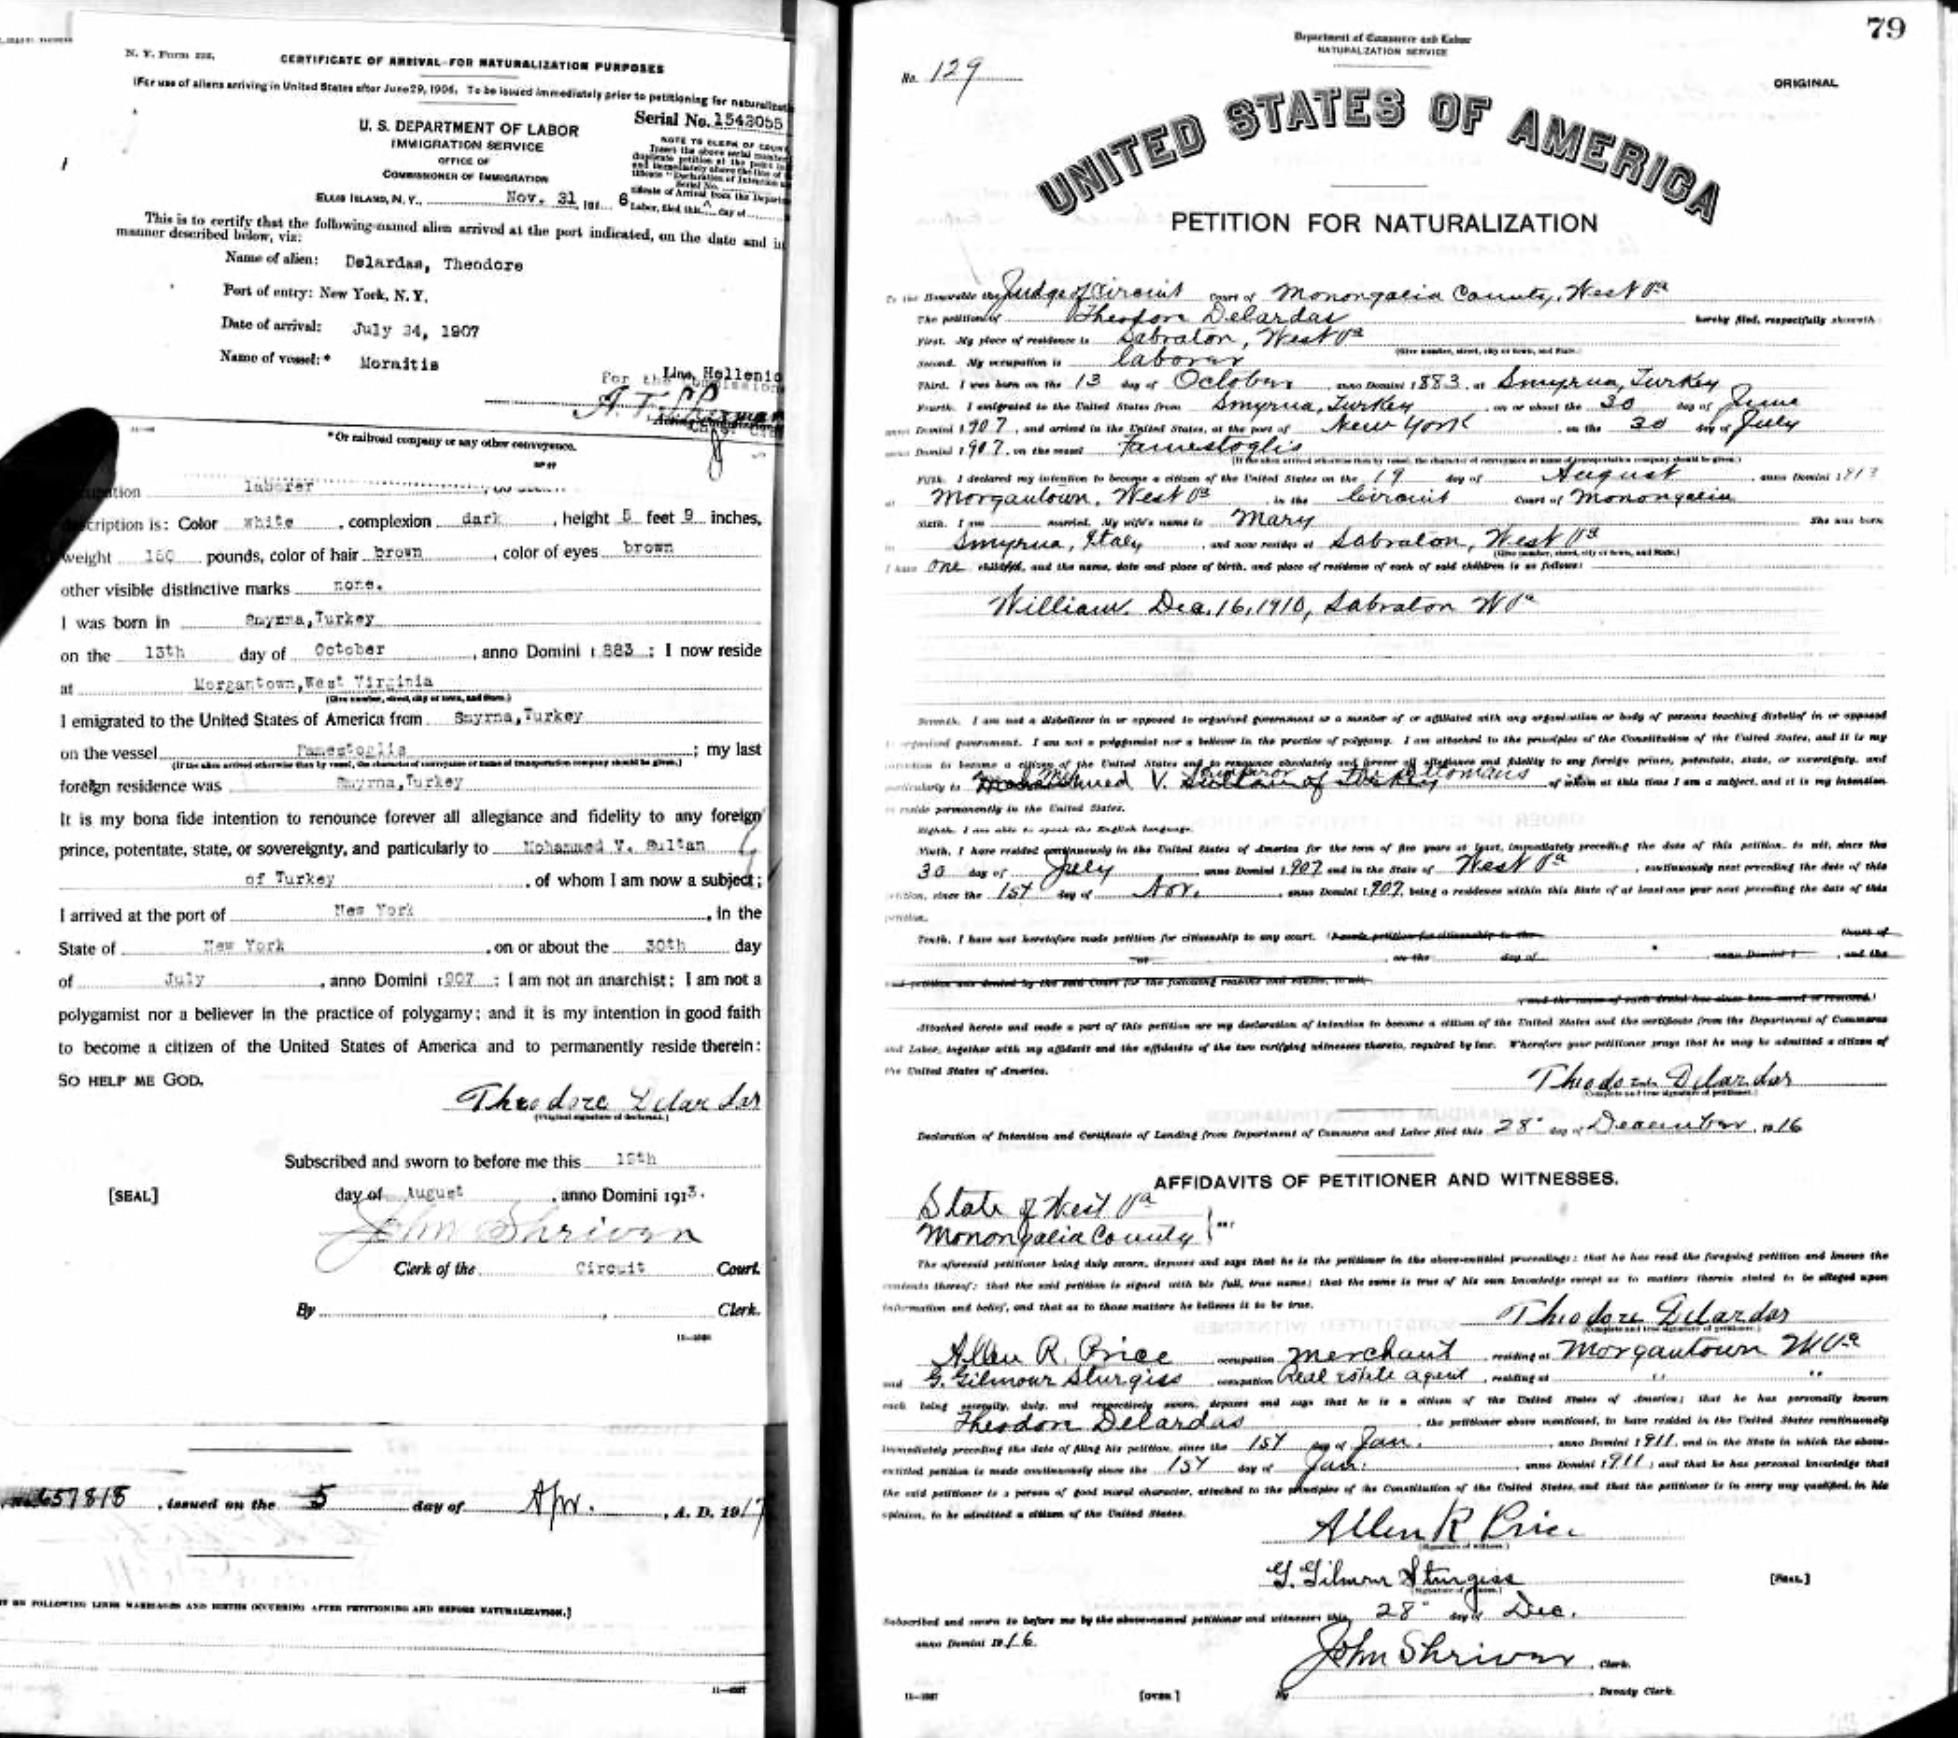 N. Y. Form 526.
CERTIFICATE OF ARRIVAL FOR NATURALIZATION PURPOSES
(For use of aliens arriving in United States after June 29, 1906. To be issued immediately prior to petitioning for
Serial No. 1543055
U. S. DEPARTMENT OF LABOR
IMMIGRATION SERVICE
OFFICE OF
COMMISSIONER OF IMMIGRATION
ELLIS ISLAND, N. Y., Nov. 31, 191 6
NOTE TO CLERK OF
This is to certify that the following-named alien arrived at the port indicated, on the date and in
manner described below, viz:
Name of alien: Delardas, Theodore
Port of entry: New York, N. Y.
Date of arrival: July 34, 1907
Name of vessel:* Moraitis
Line, Hellenic
For the
*Or railroad company or any other conveyance.
laborer
Color white, complexion dark, height 5 feet 9 inches,
weight 160 pounds, color of hair brown, color of eyes brown
other visible distinctive marks none.
I was born in Smyrna, Turkey
on the 13th day of October, anno Domini 1 883 ; I now reside
at Morgantown, West Virginia
(Give number, street, city or town, and State.)
I emigrated to the United States of America from Smyrna, Turkey
on the vessel ; my last
(If the alien arrived otherwise than by vessel, the character of conveyance or name of transportation company should be given.)
foreign residence was Smyrna, Turkey
It is my bona fide intention to renounce forever all allegiance and fidelity to any foreign
prince, potentate, state, or sovereignty, and particularly to Mohammed V. Sultan
of Turkey, of whom I am now a subject;
I arrived at the port of New York, in the
State of New York, on or about the 30th day
of July, anno Domini 1 907 ; I am not an anarchist; I am not a
polygamist nor a believer in the practice of polygamy; and it is my intention in good faith
to become a citizen of the United States of America and to permanently reside therein:
SO HELP ME GOD.
Theodore Delardas
(Original signature of declarant.)
Subscribed and sworn to before me this 19th
[SEAL] day of August, anno Domini 1913.
John Shriver
Clerk of the Circuit Court.
By , Clerk.
657818, issued on the 5 day of Apr., A. D. 1917
ON FOLLOWING LINES MARRIAGES AND BIRTHS OCCURRING AFTER PETITIONING AND BEFORE NATURALIZATION.]
79
Department of Commerce and Labor
NATURALIZATION SERVICE
No. 129
ORIGINAL
UNITED STATES OF AMERICA
PETITION FOR NATURALIZATION
To the Honorable the Judge of Circuit Court of Monongalia County, West Va
The petition of Theodore Delardas hereby filed, respectfully showeth:
First. My place of residence is Sabraton, West Va
(Give number, street, city or town, and State.)
Second. My occupation is laborer
Third. I was born on the 13 day of October, anno Domini 1 883, at Smyrna, Turkey
Fourth. I emigrated to the United States from Smyrna, Turkey, on or about the 30 day of June
anno Domini 1 907, and arrived in the United States, at the port of New York, on the 30 day of July
anno Domini 1 907, on the vessel Famestoglis
(If the alien arrived otherwise than by vessel, the character of conveyance or name of transportation company should be given.)
Fifth. I declared my intention to become a citizen of the United States on the 19 day of August, anno Domini 1 913
at Morgantown, West Va in the Circuit Court of Monongalia
Sixth. I am married. My wife's name is Mary She was born
in Smyrna, Italy, and now resides at Sabraton, West Va
(Give number, street, city or town, and State.)
I have one children, and the name, date and place of birth, and place of residence of each of said children is as follows:
William. Dec. 16, 1910, Sabraton W Va
Seventh. I am not a disbeliever in or opposed to organized government or a member of or affiliated with any organization or body of persons teaching disbelief in or opposed
to organized government. I am not a polygamist nor a believer in the practice of polygamy. I am attached to the principles of the Constitution of the United States, and it is my
intention to become a citizen of the United States and to renounce absolutely and forever all allegiance and fidelity to any foreign prince, potentate, state, or sovereignty, and
particularly to V. Sultan of Turkey Emperor Ottomans of whom at this time I am a subject, and it is my intention
to reside permanently in the United States.
Eighth. I am able to speak the English language.
Ninth. I have resided continuously in the United States of America for the term of five years at least, immediately preceding the date of this petition, to wit, since the
30 day of July, anno Domini 1 907 and in the State of West Va, continuously next preceding the date of this
petition, since the 1st day of Nov., anno Domini 1 907, being a residence within this State of at least one year next preceding the date of this
petition.
Tenth. I have not heretofore made petition for citizenship to any court. (I made petition for citizenship to the Court of
at , on the day of , anno Domini 1 , and the
said petition was denied by the said Court for the following reasons and causes, to wit,
, and the cause of such denial has since been cured or removed.)
Attached hereto and made a part of this petition are my declaration of intention to become a citizen of the United States and the certificate from the Department of Commerce
and Labor, together with my affidavit and the affidavits of the two verifying witnesses thereto, required by law. Wherefore your petitioner prays that he may be admitted a citizen of
the United States of America.
Theodore Delardas
(Complete and true signature of petitioner.)
Declaration of Intention and Certificate of Landing from Department of Commerce and Labor filed this 28" day of December, 1916
AFFIDAVITS OF PETITIONER AND WITNESSES.
State of West Va
Monongalia County } ss:
The aforesaid petitioner being duly sworn, deposes and says that he is the petitioner in the above-entitled proceedings; that he has read the foregoing petition and knows the
contents thereof; that the said petition is signed with his full, true name; that the same is true of his own knowledge except as to matters therein stated to be alleged upon
information and belief, and that as to those matters he believes it to be true.
Theodore Delardas
(Complete and true signature of petitioner.)
Allen R. Price, occupation merchant, residing at Morgantown W Va
and G. Gilmour Sturgiss, occupation Real estate agent, residing at " "
each being severally, duly, and respectively sworn, deposes and says that he is a citizen of the United States of America; that he has personally known
Theodore Delardas, the petitioner above mentioned, to have resided in the United States continuously
immediately preceding the date of filing his petition, since the 1st day of Jan., anno Domini 1 911, and in the State in which the above-
entitled petition is made continuously since the 1st day of Jan., anno Domini 1 911; and that he has personal knowledge that
the said petitioner is a person of good moral character, attached to the principles of the Constitution of the United States, and that the petitioner is in every way qualified, in his
opinion, to be admitted a citizen of the United States.
Allen R Price
(Signature of witness.)
G. Gilmour Sturgiss
(Signature of witness.)
[SEAL.]
Subscribed and sworn to before me by the above-named petitioner and witnesses this 28" day of Dec.
anno Domini 1916.
John Shriver, Clerk.
[OVER.] By , Deputy Clerk.